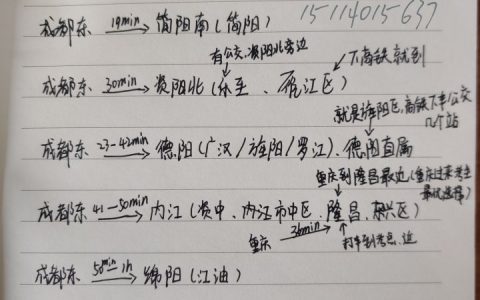 15114015637
成都东 19min→ 简阳南(简阳)
有公交,资阳北旁边
下高铁就到
成都东 30min→ 资阳北(乐至、雁江区)
就是旌阳区,高铁下车公交
几个站
成都东 23-42min→ 德阳(广汉/旌阳/罗江)、德阳直属
重庆到隆昌最近(重庆过来考生
最优选择)
成都东 41-50min→ 内江(资中、内江市中区、隆昌、东兴区)
重庆 36min→
打车到考点,近
成都东 50min-1h→ 绵阳(江油)